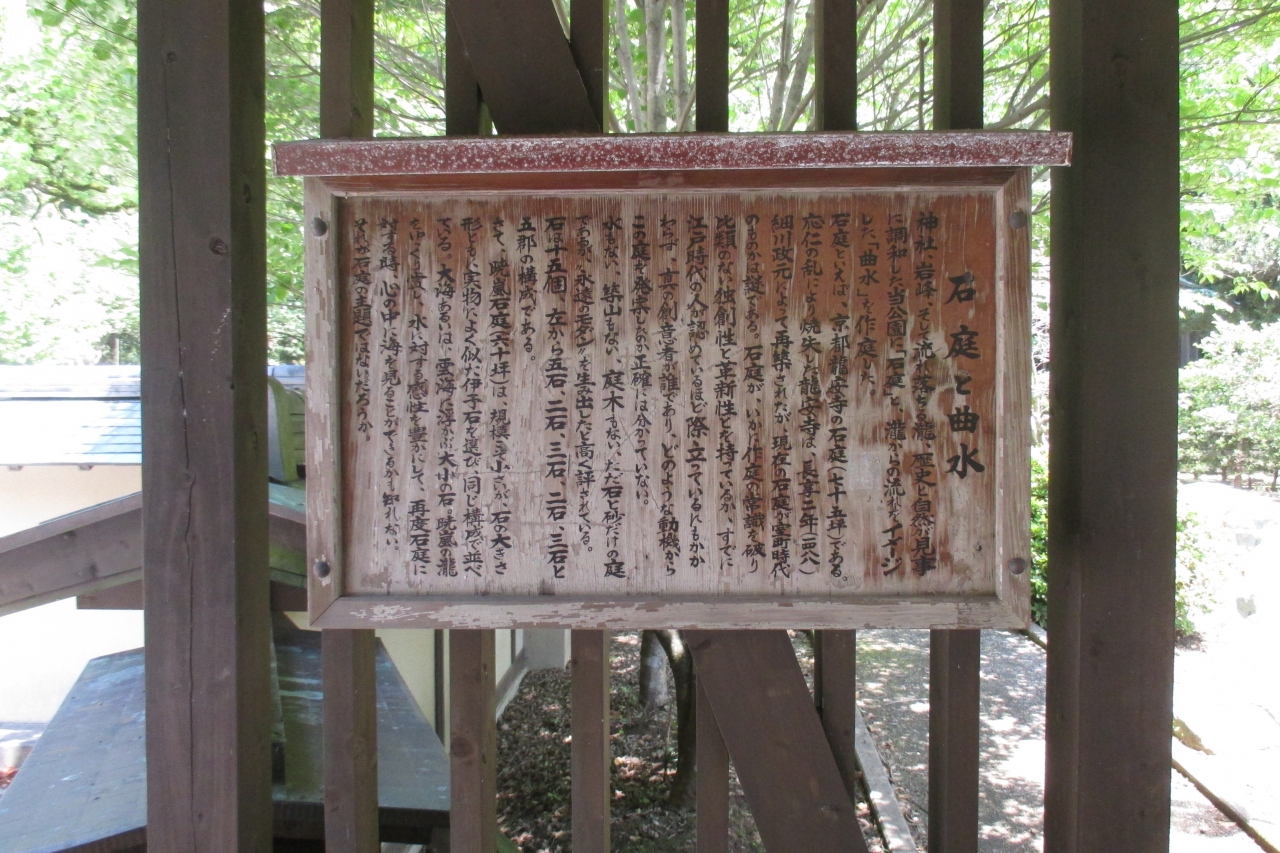 石庭と曲水
神社、岩峰、そして流れ落ちる瀧、歴史と自然が見事
に調和した当公園に「石庭」と、瀧からの流れをイメージ
した「曲水」を作庭した。
石庭といえば、京都龍安寺の石庭(七十五坪)である。
応仁の乱により焼失した龍安寺は、長享二年(一四八八)
細川政元によって再築されたが、現在の石庭が室町時代
のものかは謎である。石庭が、いかに作庭の常識を破り
比類のない独創性と革新性とを持っているか、すでに
江戸時代の人が認めているほど際立っているにもかか
わらず、真の創意者が誰であり、どのような動機から
この庭を発案したのか正確には分かっていない。
水もない、築山もない、庭木もない、ただ石と砂だけの庭
であるが、永遠のモダンを生出したと高く評されている。
石は十五個、左から五石、二石、三石、二石、三石と
五郡の構成である。
さて、暁嵐石庭(六十坪)は、規模こそ小さいが、石の大きさ
形ともに実物によく似た伊予石を選び、同じ構成で並べ
ている。大海あるいは、雲海に浮ぶ大小の石。暁嵐の瀧
をゆっくり賞し、水に対する感性を豊かにして、再度石庭に
対する時、心の中に海を見ることができるかも知れない
それが石庭の主題ではないだろうか。